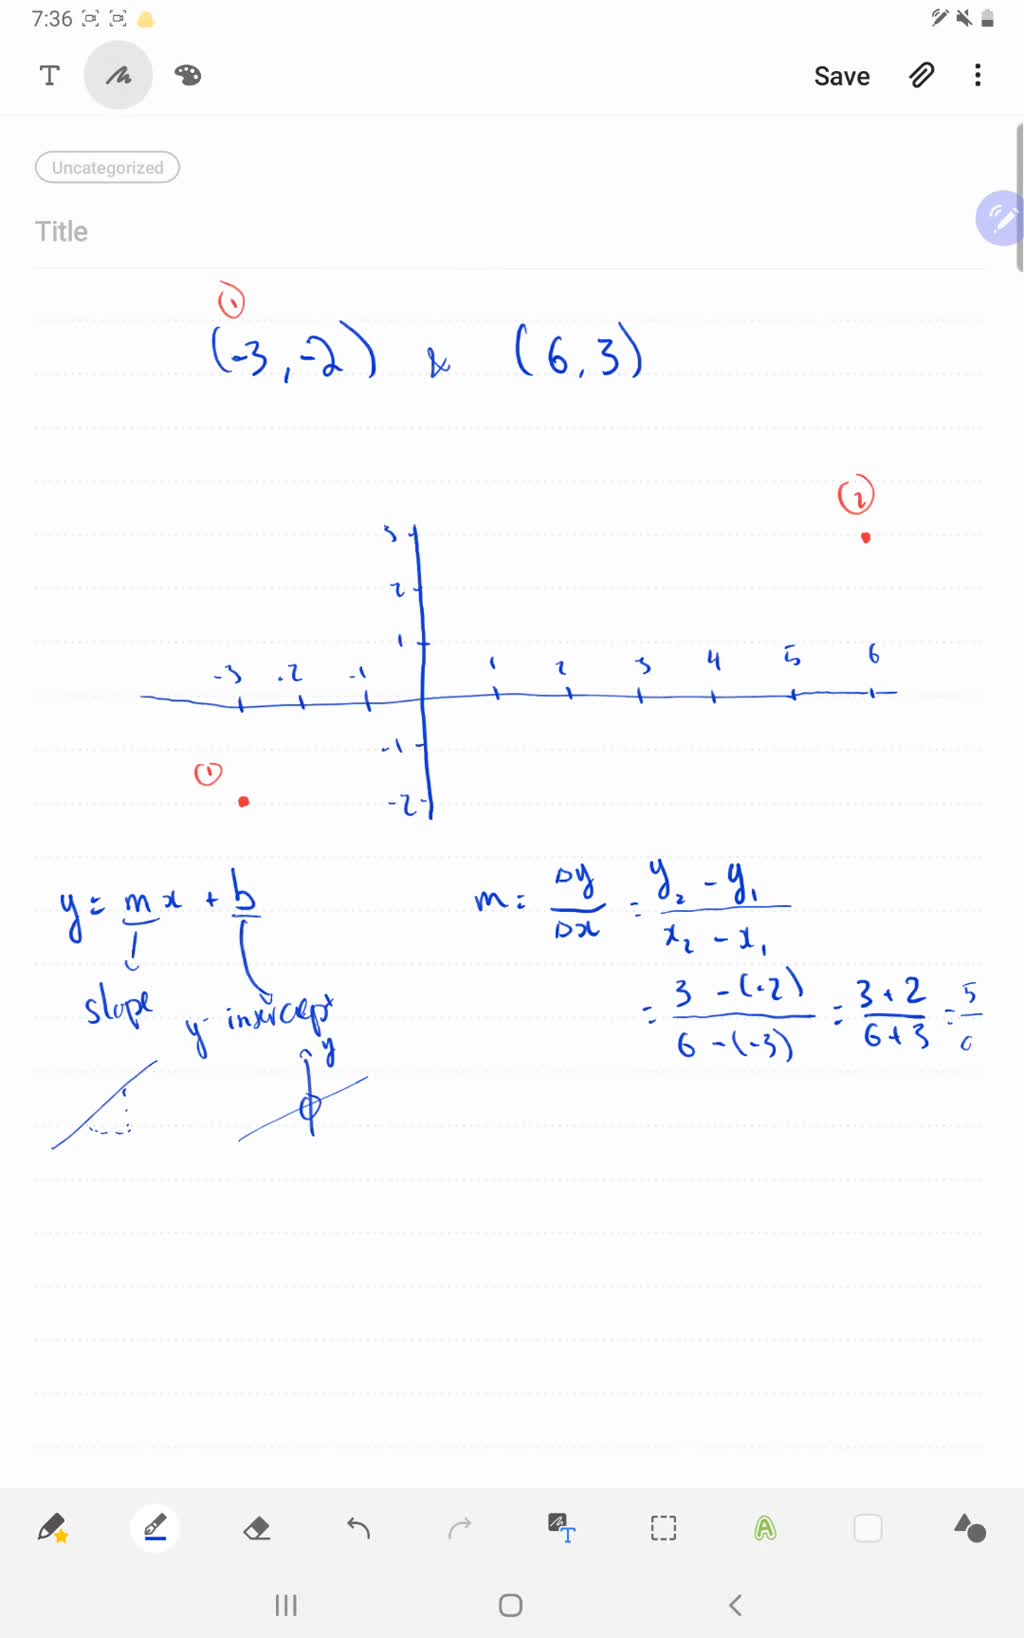 7:36
T Save
Uncategorized
Title
①
(-3, -2) & (6, 3)
②
3
2
1
-3 -2 -1 1 2 3 4 5 6
-1
①
-2
y = mx + b
slope
y-intercept
y
m = Δy/Δx = y₂ - y₁ / x₂ - x₁
= 3 - (-2) / 6 - (-3) = 3 + 2 / 6 + 3 = 5
T
A